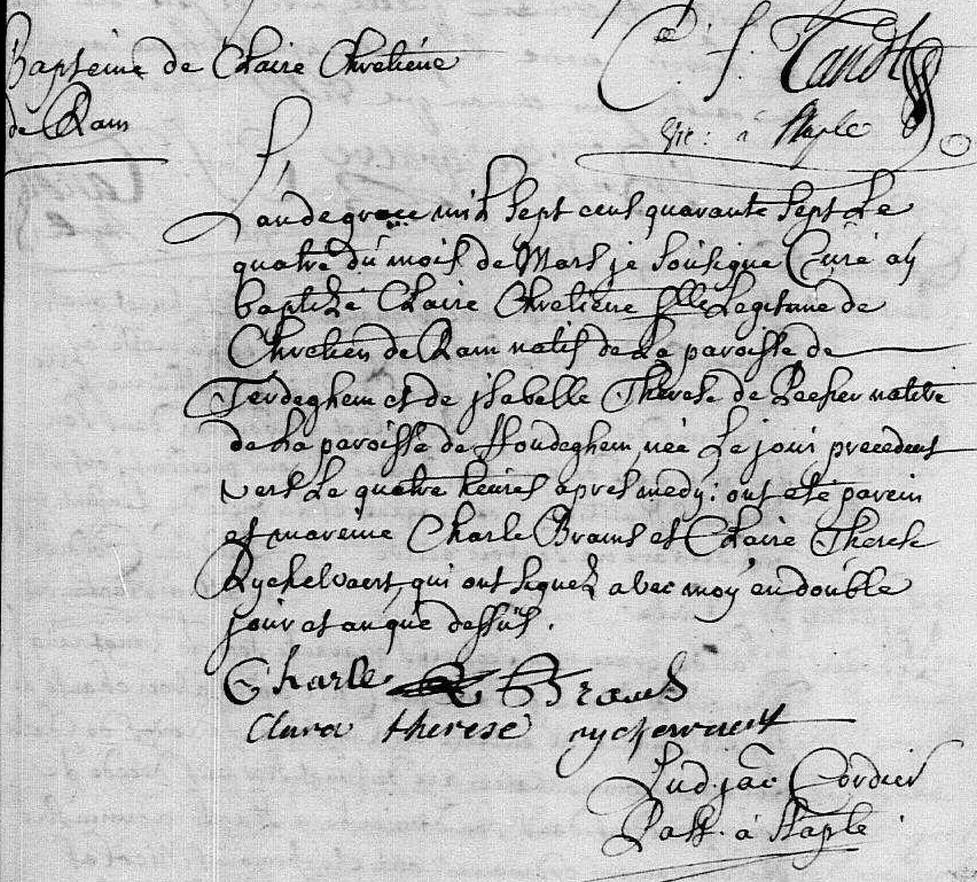 Bapteme de Claire Chretiéne
de Ram
C. f. Tandt
gre: a Staple
L'an de grace mil sept cens quarante sept Le
quatre du mois de Mars je sousigne Curé aÿ
baptizé Claire Chretiene fille Legitime de
Chretien de Ram natif de La paroisse de
Terdeghem et de jsabelle Therese de native
de La paroisse de Hondeghem, née Le jour precedent
vers Le quatre heures apres medy: ont eté parein
et mareine Charle Brams et Claire Therese
Rychelvaert, qui ont signez avec moy en double
jour et an que dessus.
Charle Brams
Clara therese rychewaert
Lud. jac. Cordier
Past. a Staple.